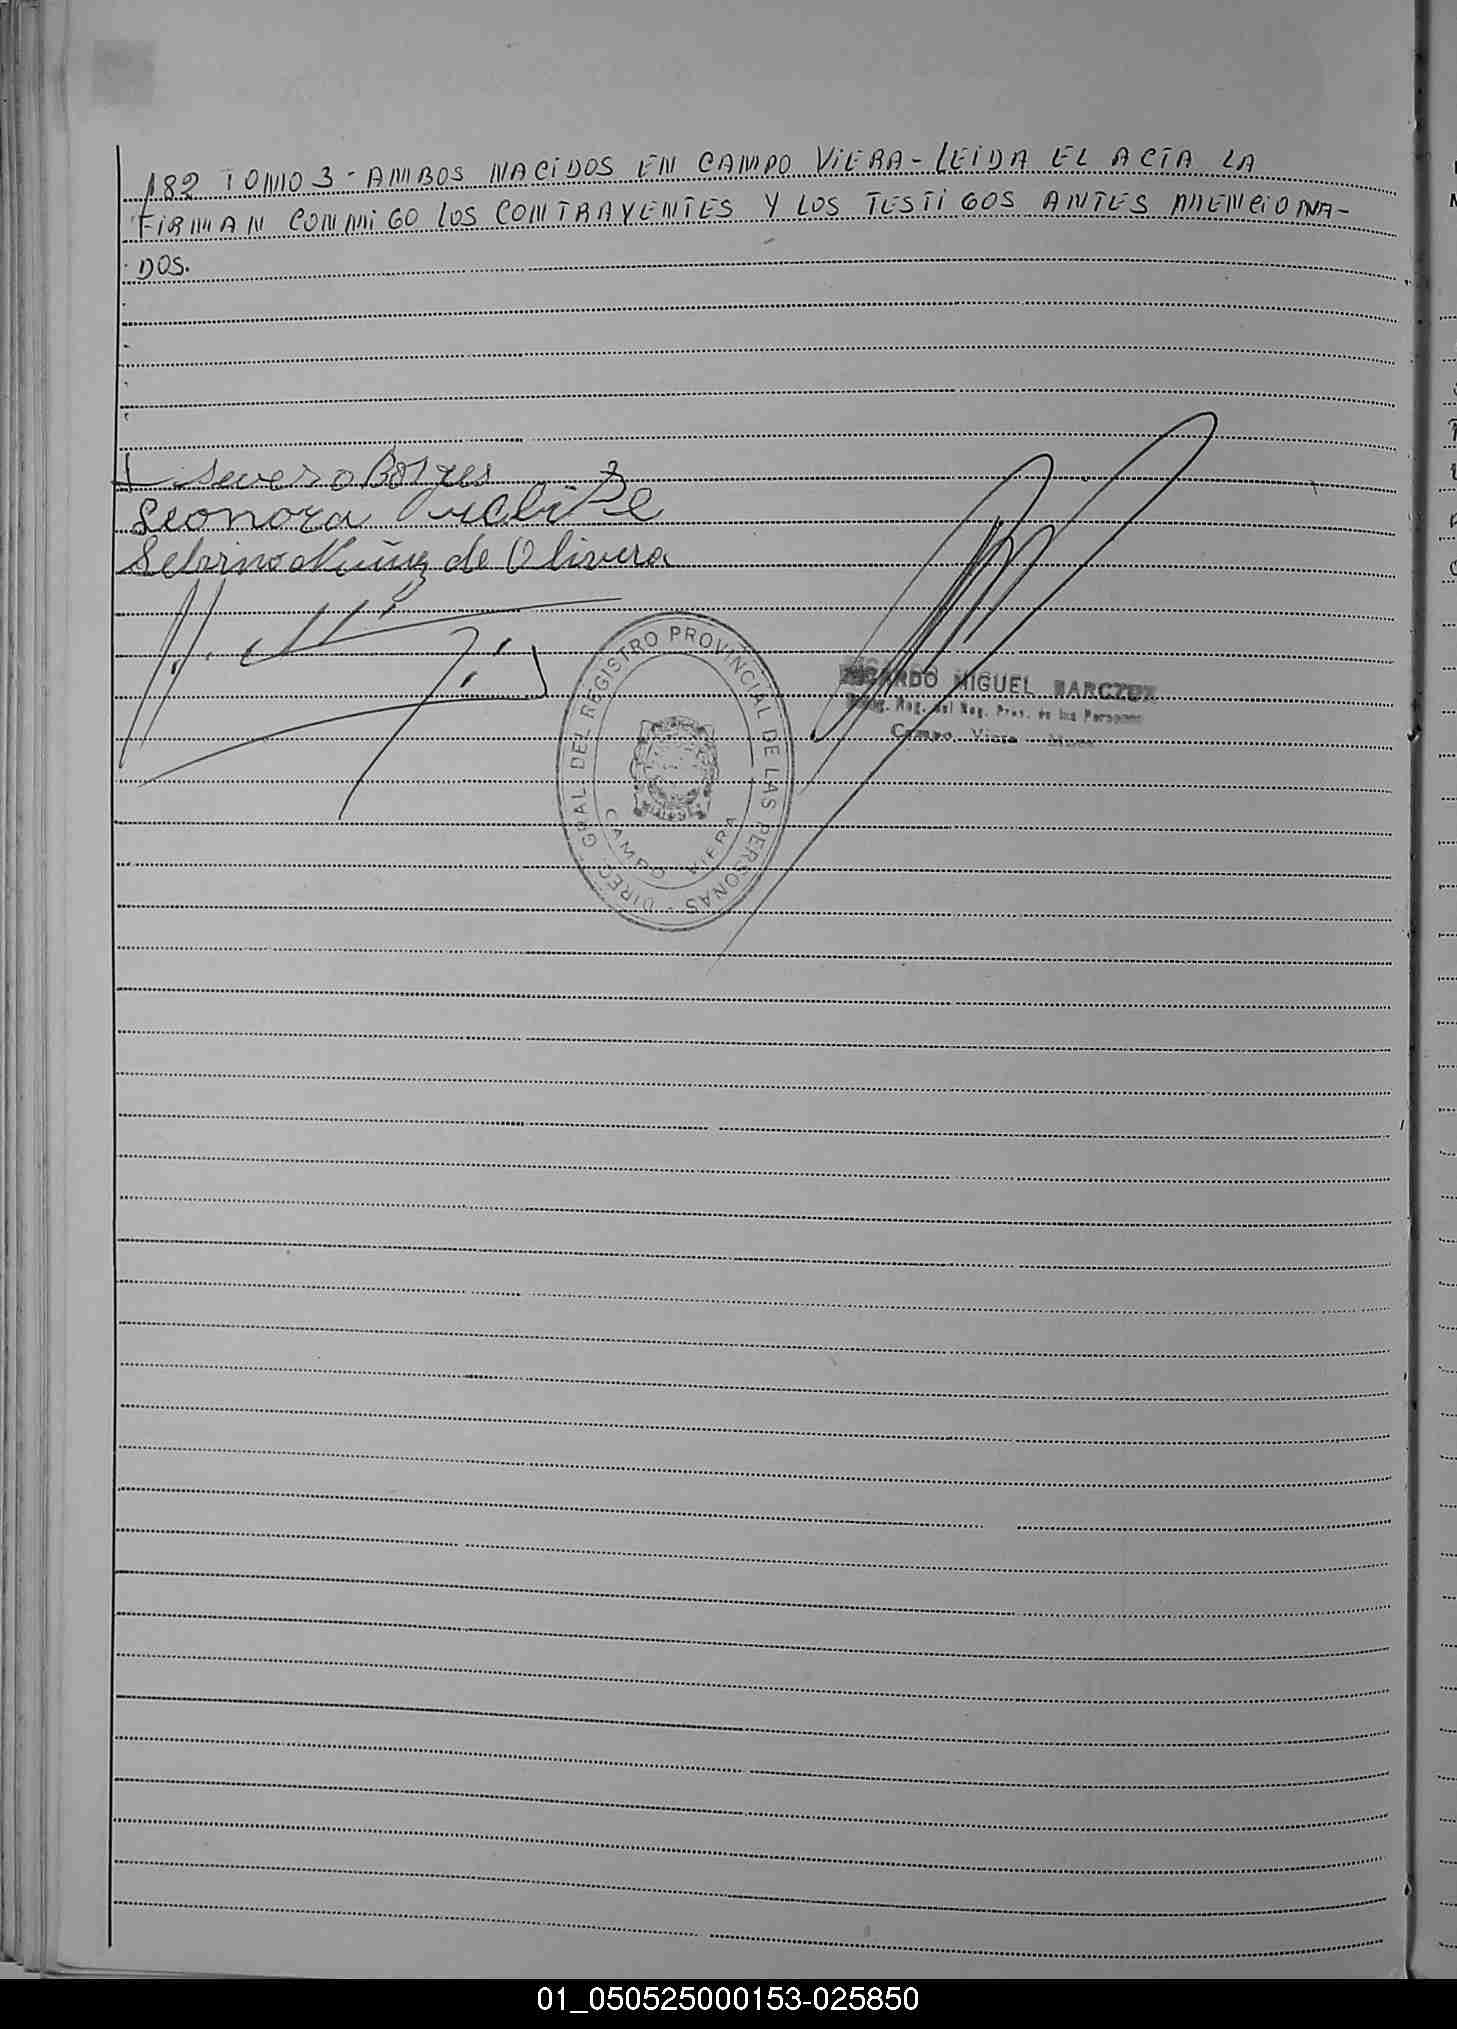 182 TOMO 3 - AMBOS NACIDOS EN CAMPO VIERA - LEIDA EL ACTA LA
FIRMAN CONMIGO LOS CONTRAYENTES Y LOS TESTIGOS ANTES MENCIONA-
DOS.
Severo Borges
Leonora
Nuñez de Olivera
DIREC. GRAL. DEL REGISTRO PROVINCIAL DE LAS PERSONAS
CAMPO VIERA
RICARDO MIGUEL BARCZUK
Reg. del Reg. Prov. de las Personas
Campo Viera
01_050525000153-025850